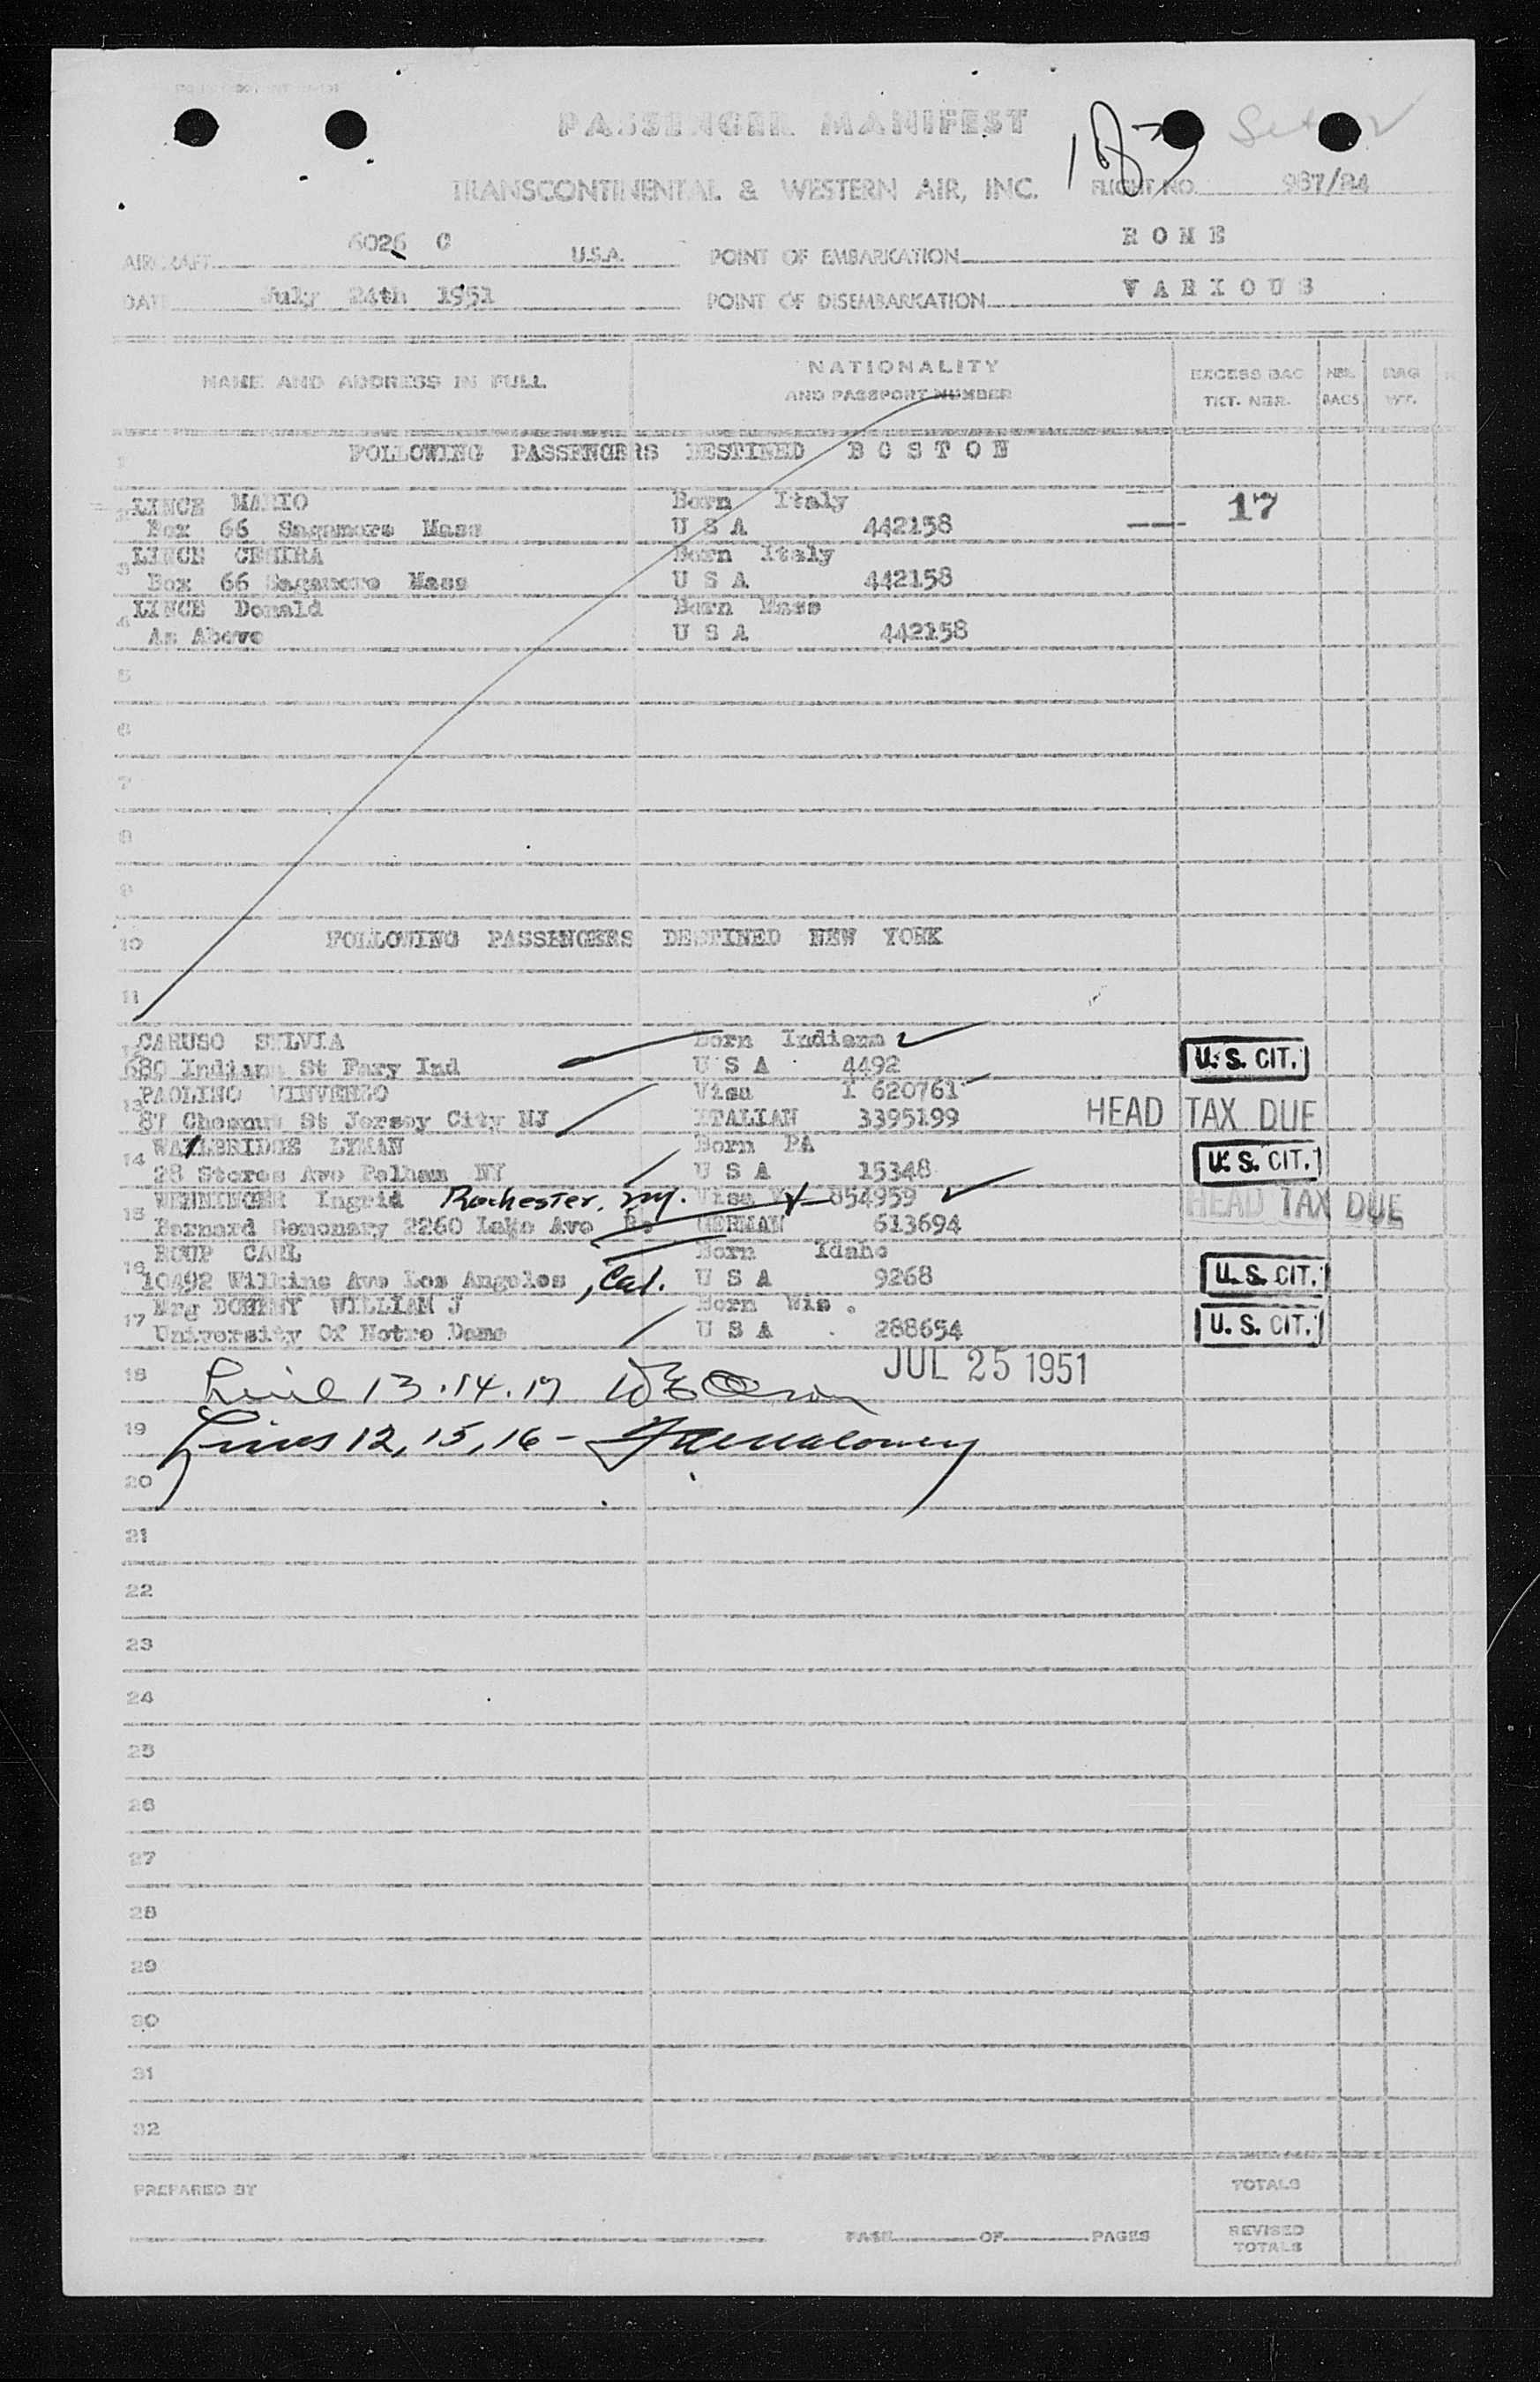 PASSENGER MANIFEST
183
TRANSCONTINENTAL & WESTERN AIR, INC. FLIGHT NO. 967/24
AIRCRAFT 6026 C U.S.A. POINT OF EMBARKATION R O M E
DATE July 24th 1951 POINT OF DISEMBARKATION V A R I O U S
NAME AND ADDRESS IN FULL NATIONALITY AND PASSPORT NUMBER EXCESS BAG TKT. NBR. NBR. BAGS BAG WT.
1 FOLLOWING PASSENGERS DESTINED B O S T O N
2 LINCE MARIO Born Italy 17
Box 66 Sagamore Mass U S A 442158
3 LINCE CESIRA Born Italy
Box 66 Sagamore Mass U S A 442158
4 LINCE Donald Born Mass
As Above U S A 442158
5
6
7
8
9
10 FOLLOWING PASSENGERS DESTINED NEW YORK
11
12 CARUSO SYLVIA Born Indiana
680 Indiana St Pary Ind U S A 4492 U.S. CIT.
13 PAOLINO VINVENZO Visa I 620761
87 Chesnut St Jersey City NJ ITALIAN 3395199 HEAD TAX DUE
14 WALLBRIDGE LYMAN Born PA
28 Stores Ave Pelham NY U S A 15348 U.S. CIT.
15 WENNINGER Ingrid Rochester, NY. Visa 854959 HEAD TAX DUE
Bernard Semonary 2260 Lake Ave Ro GERMAN 613694
16 ROUP CARL Born Idaho
10492 Wilkins Ave Los Angeles, Cal. U S A 9268 U.S. CIT.
17 Mrg DOHENY WILLIAM J Born Wis.
University Of Notre Dame U S A 288654 U.S. CIT.
18 JUL 25 1951
Line 13.14.17
19 Lines 12, 15, 16 -
20
21
22
23
24
25
26
27
28
29
30
31
32
PREPARED BY
PAGE OF PAGES
TOTALS
REVISED TOTALS